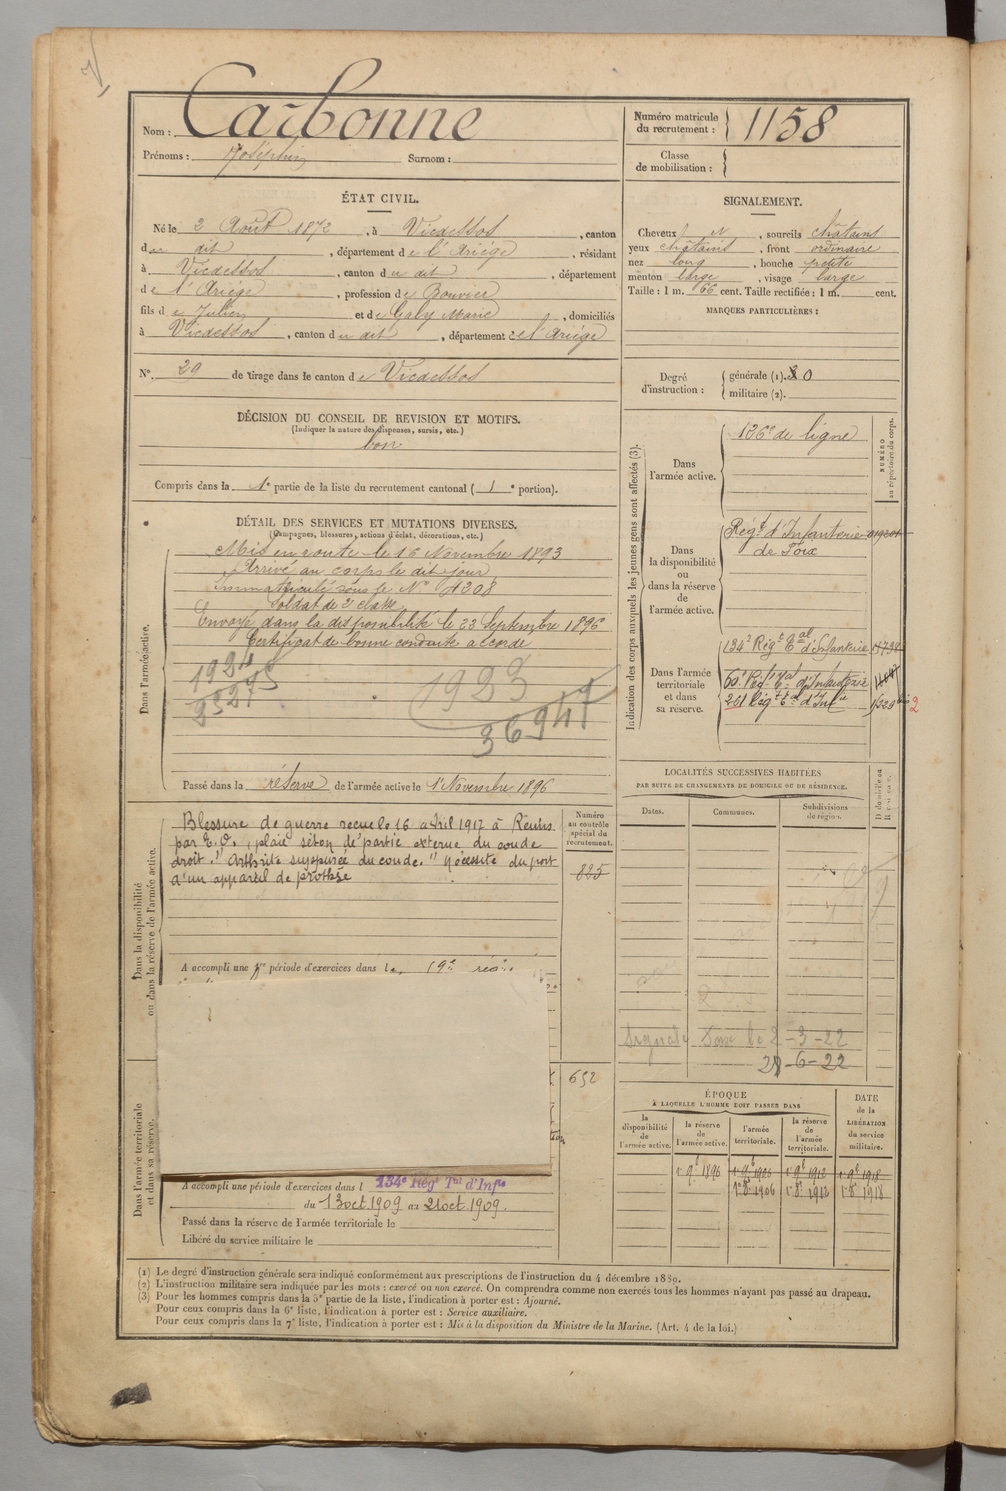 Nom : Carbonne
Prénoms : Joséphin Surnom :
Numéro matricule du recrutement : 1158
Classe de mobilisation :
ÉTAT CIVIL.
Né le 2 Août 1872, à Vicdessos, canton
du dit, département de l'Ariège, résidant
à Vicdessos, canton du dit, département
de l'Ariège, profession de Bouvier
fils de Julien et de Galy Marie, domiciliés
à Vicdessos, canton du dit, département de l'Ariège
N° 29 de tirage dans le canton de Vicdessos
SIGNALEMENT.
Cheveux, sourcils châtains
yeux châtains, front ordinaire
nez long, bouche petite
menton large, visage large
Taille : 1 m. 66 cent. Taille rectifiée : 1 m. cent.
MARQUES PARTICULIÈRES :
Degré d'instruction : générale (1). 0
militaire (2).
DÉCISION DU CONSEIL DE REVISION ET MOTIFS.
(Indiquer la nature des dispenses, sursis, etc.)
bon
Compris dans la 1e partie de la liste du recrutement cantonal (1e portion).
DÉTAIL DES SERVICES ET MUTATIONS DIVERSES.
(Campagnes, blessures, actions d'éclat, décorations, etc.)
Dans l'armée active.
Mis en route le 16 Novembre 1893
Arrivé au corps le dit jour
Immatriculé sous le N° 4308
Soldat de 2e classe
Envoyé dans la disponibilité le 23 Septembre 1896
Certificat de bonne conduite accordé
1924
23275
1923
36947
Passé dans la réserve de l'armée active le 1er Novembre 1896
Indication des corps auxquels les jeunes gens sont affectés (3).
NUMÉRO au répertoire du corps.
Dans l'armée active.
126e de ligne
Dans la disponibilité ou dans la réserve de l'armée active.
Régt d'Infanterie
de Foix
Dans l'armée territoriale et dans sa réserve.
134e Régt Tal d'Infanterie
60e Régt Tal d'Infanterie
261 Régt Tal d'Inf
LOCALITÉS SUCCESSIVES HABITÉES
PAR SUITE DE CHANGEMENTS DE DOMICILE OU DE RÉSIDENCE.
Dates. Communes. Subdivisions de région.
2-3-22
28-6-22
Dans la disponibilité ou dans la réserve de l'armée active.
Numéro au contrôle spécial du recrutement.
825
Blessure de guerre reçue le 16 avril 1917 à Reims
par E.O., plaie séton de partie externe du coude
droit." Arthrite suppurée du coude." nécessité du port
d'un appareil de prothèse
A accompli une 1re période d'exercices dans le 19e
652
Dans l'armée territoriale et dans sa réserve.
A accompli une période d'exercices dans l 134e Régt Tal d'Infie
du 13 oct 1909 au 21 oct. 1909.
Passé dans la réserve de l'armée territoriale le
Libéré du service militaire le
ÉPOQUE
À LAQUELLE L'HOMME DOIT PASSER DANS
la disponibilité de l'armée active. la réserve de l'armée active. l'armée territoriale. la réserve de l'armée territoriale.
DATE de la LIBÉRATION du service militaire.
1er 9bre 1896 1er 9bre 1906 1er 9bre 1912 1er 9bre 1918
1er 8bre 1906 1er 8bre 1912 1er 8bre 1918
(1) Le degré d'instruction générale sera indiqué conformément aux prescriptions de l'instruction du 4 décembre 1889.
(2) L'instruction militaire sera indiquée par les mots : exercé ou non exercé. On comprendra comme non exercés tous les hommes n'ayant pas passé au drapeau.
(3) Pour les hommes compris dans la 5e partie de la liste, l'indication à porter est : Ajourné.
Pour ceux compris dans la 6e liste, l'indication à porter est : Service auxiliaire.
Pour ceux compris dans la 7e liste, l'indication à porter est : Mis à la disposition du Ministre de la Marine. (Art. 4 de la loi.)